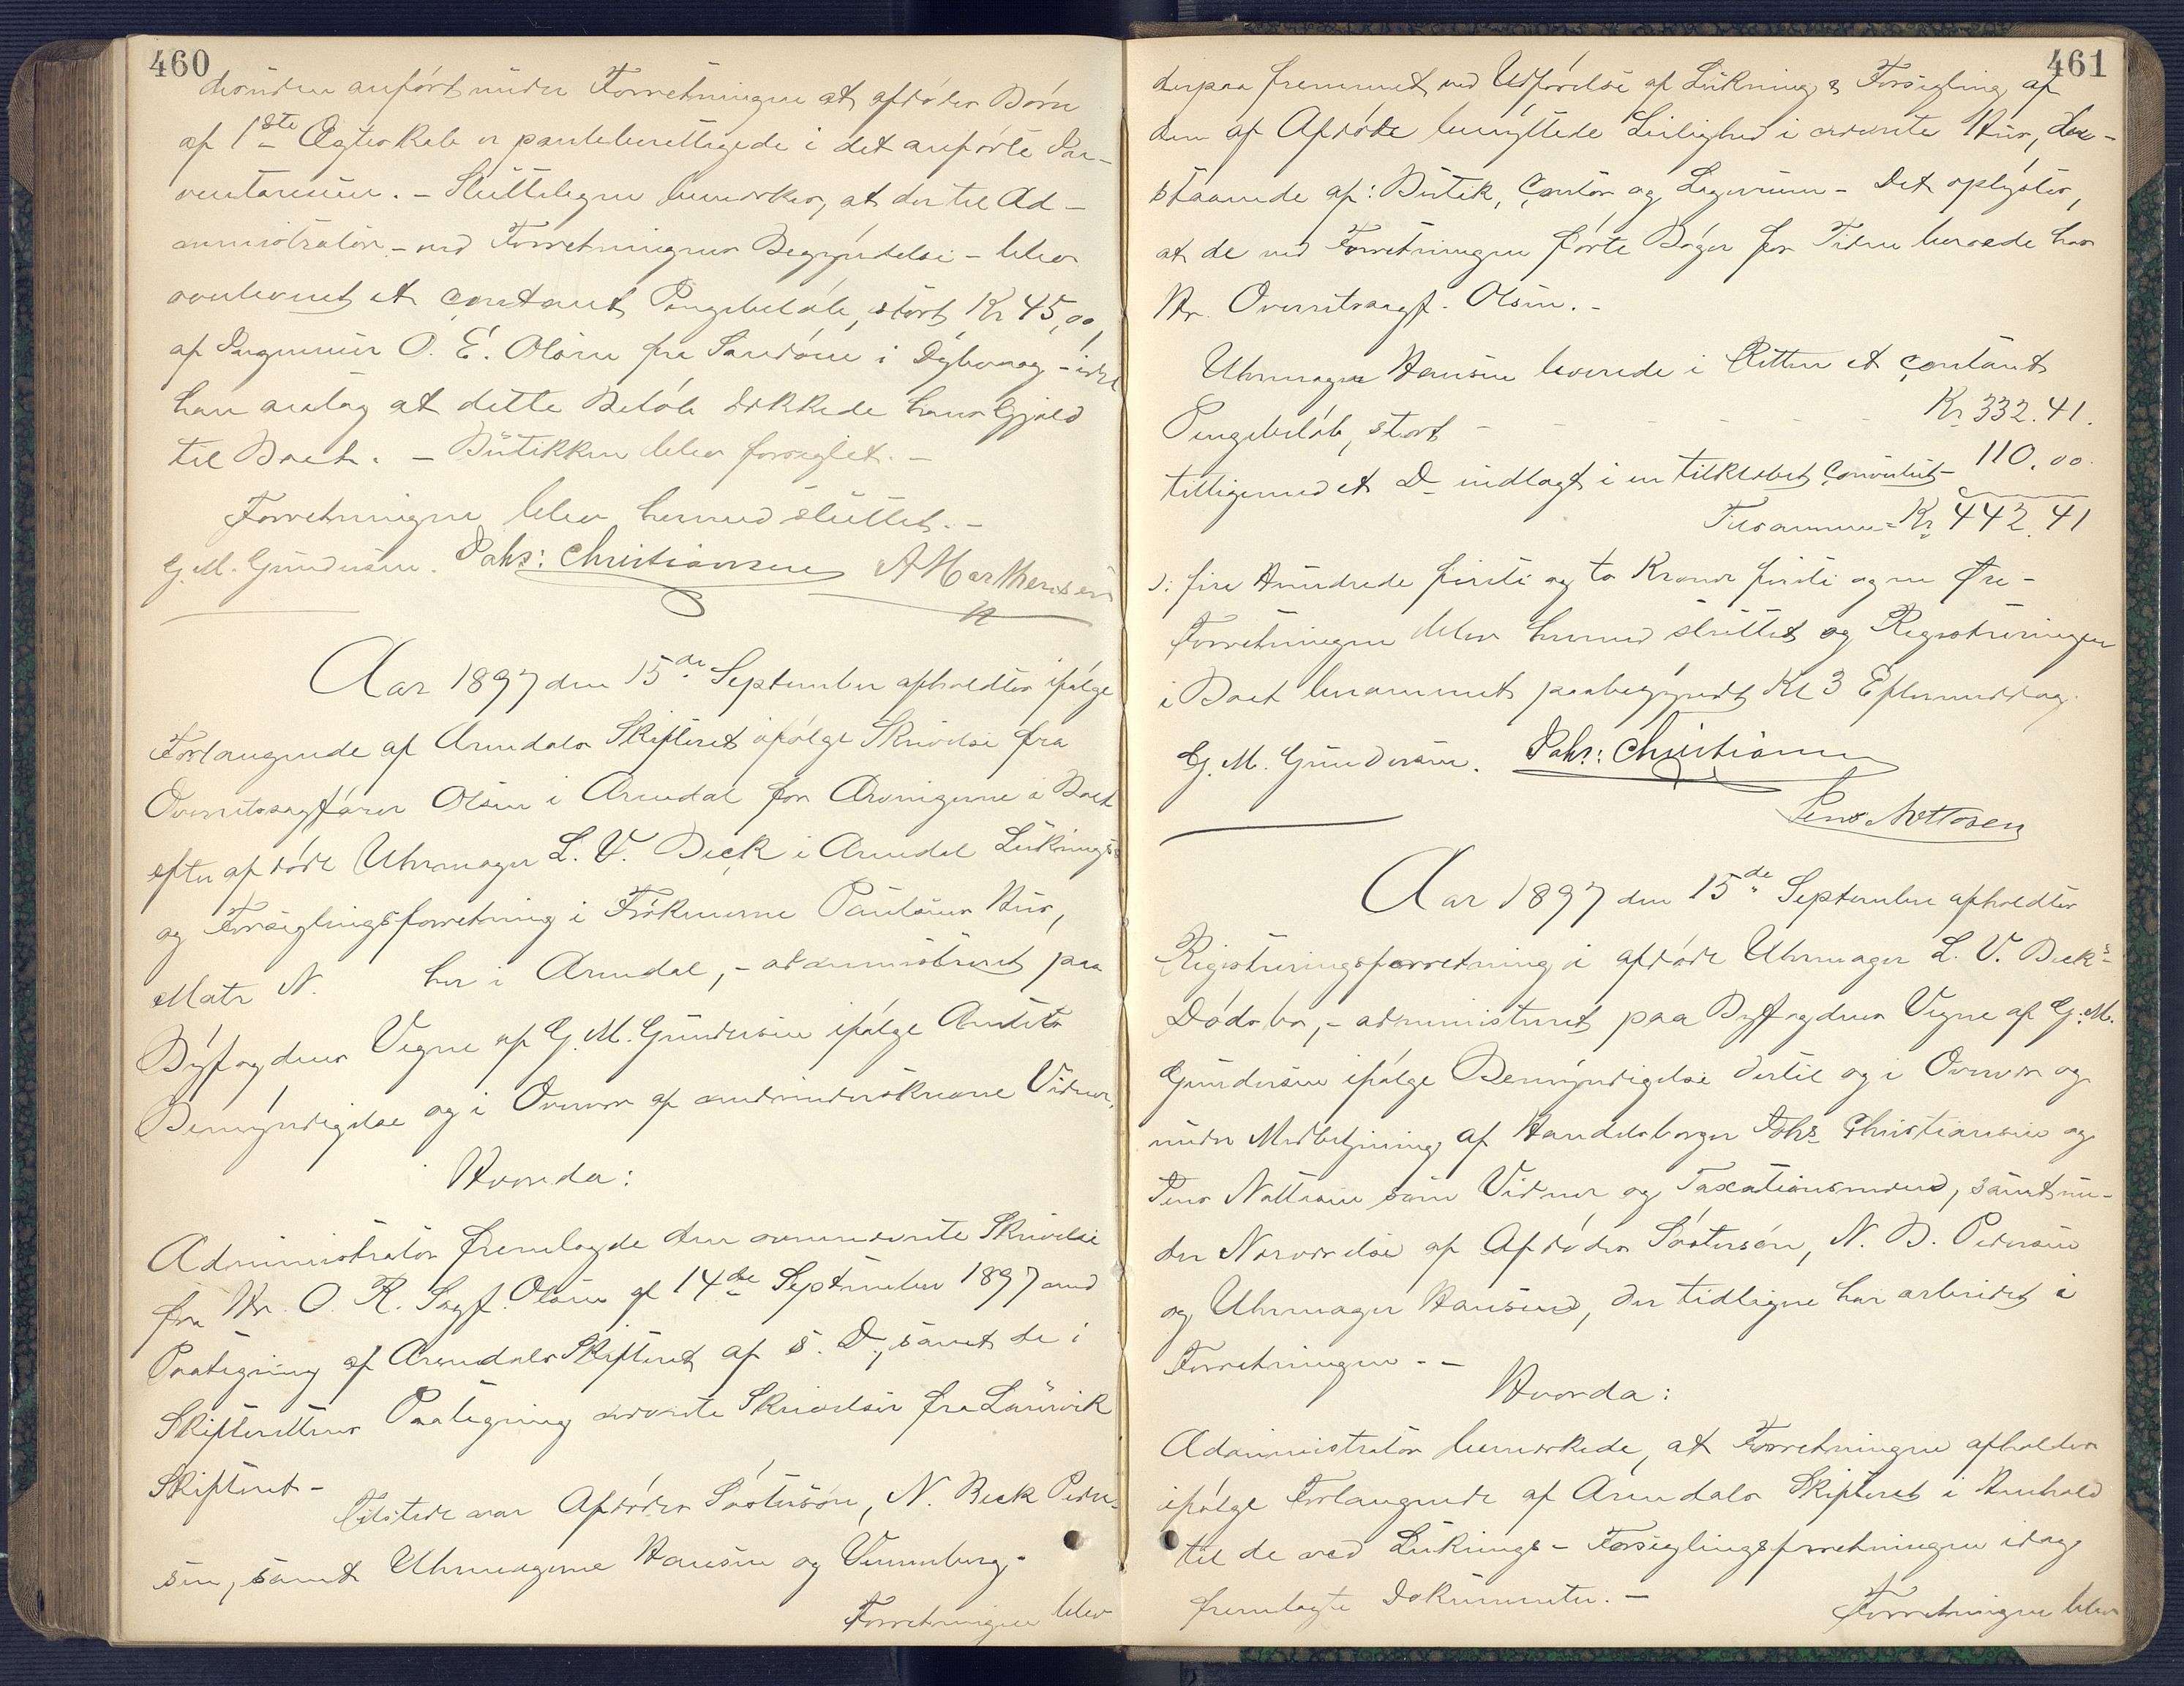 460
anført under Forretningen at afdødes Børn
af 1ste Ægteskab er panteberettigede i det anførte
ventarium. - Sluttelegen bemærkes, at der til Ad-
ministrator - ved Forretningens Begyndelse - blev
overlevert et contant Pengebeløb, stort Kr 45,00,
af O. E. Olsen fra Sandøen i Dybvaag - idet
han antog at dette Beløb dækkede hans Gjæld
til Boet. - Butikken blev forseglet. -
Forretningen blev hermed sluttet. -
G. M. Gundersen. Johs: Christiansen A Marthensen
Aar 1897 den 15de September afholdtes ifølge
Forlangende af Arendals Skifteret ifølge Skrivelse fra
Overretssagfører Olsen i Arendal for Arvingerne i Boet
efter afdøde Uhrmager L. V. Beck i Arendal Luknings-
og Forseglingsforretning i Frøknerne Paulsens Hus,
Matr N. her i Arendal, - administreret paa
Byfogdens Vegne af G. M. Gundersen ifølge Amtets
Bemyndigelse og i Overvær af medunderskrevne Vidner.
Hvorda:
Administrator fremlagde den ommeldte Skrivelse
fra Hr. O. R. Sagf. Olsen af 14de September 1897 med
Paategning af Arendals Skifteret af s. D., samt de i
Skifterettens Paategning nævnte Skrivelser fra Laurvik
Skifteret -
Tilstede var Afdødes Søstersøn, N. Beck Peder-
sen, samt Uhrmagerne Hansen og Vennberg.
Forretningen blev
461
derpaa fremmet ved Udførelse af Lukning & Forsegling af
den af Afdøde benyttede Leilighed i nævnte Hus, be-
staaende af: Butik, Contor og Lagerrum - Det oplystes,
at de ved Forretningen førte Bøger for Tiden beroede hos
Hr. Overretssagf. Olsen. -
Uhrmager Hansen leverede i Retten et contant
Pengebeløb, stort - - - - - - Kr 332.41.
tilligemed et Do indlagt i en tilklæbet Convolut - 110.00.
Tilsammen = Kr 442.41
ɔ: fire Hundrede firti og to Kroner firti og en Øre -
Forretningen blev hermed sluttet og Registreringen
i Boet berammet paabegyndt Kl 3 Eftermiddag.
G. M. Gundersen. Johs: Christiansen
Jens Nottosen
Aar 1897 den 15de September afholdtes
Registreringsforretning i afdøde Uhrmager L. V. Beck's
Dødsbo, - administreret paa Byfogdens Vegne af G. M.
Gundersen ifølge Bemyndigelse dertil og i Overvær og
under Medbetjening af Handelsborger Johs Christiansen og
Jens Nottosen som Vidner og Taxationsmænd, samt un-
der Nærværelse af Afdødes Søstersøn, N. B. Pedersen
og Uhrmager Hansen, der tidligere har arbeidet i
Forretningen. -
Hvorda:
Administrator bemærkede, at Forretningen afholdes
ifølge Forlangende af Arendals Skifteret i Henhold
til de ved Luknings- Forseglingsforretningen idag
fremlagte Dokumenter. -
Forretningen blev